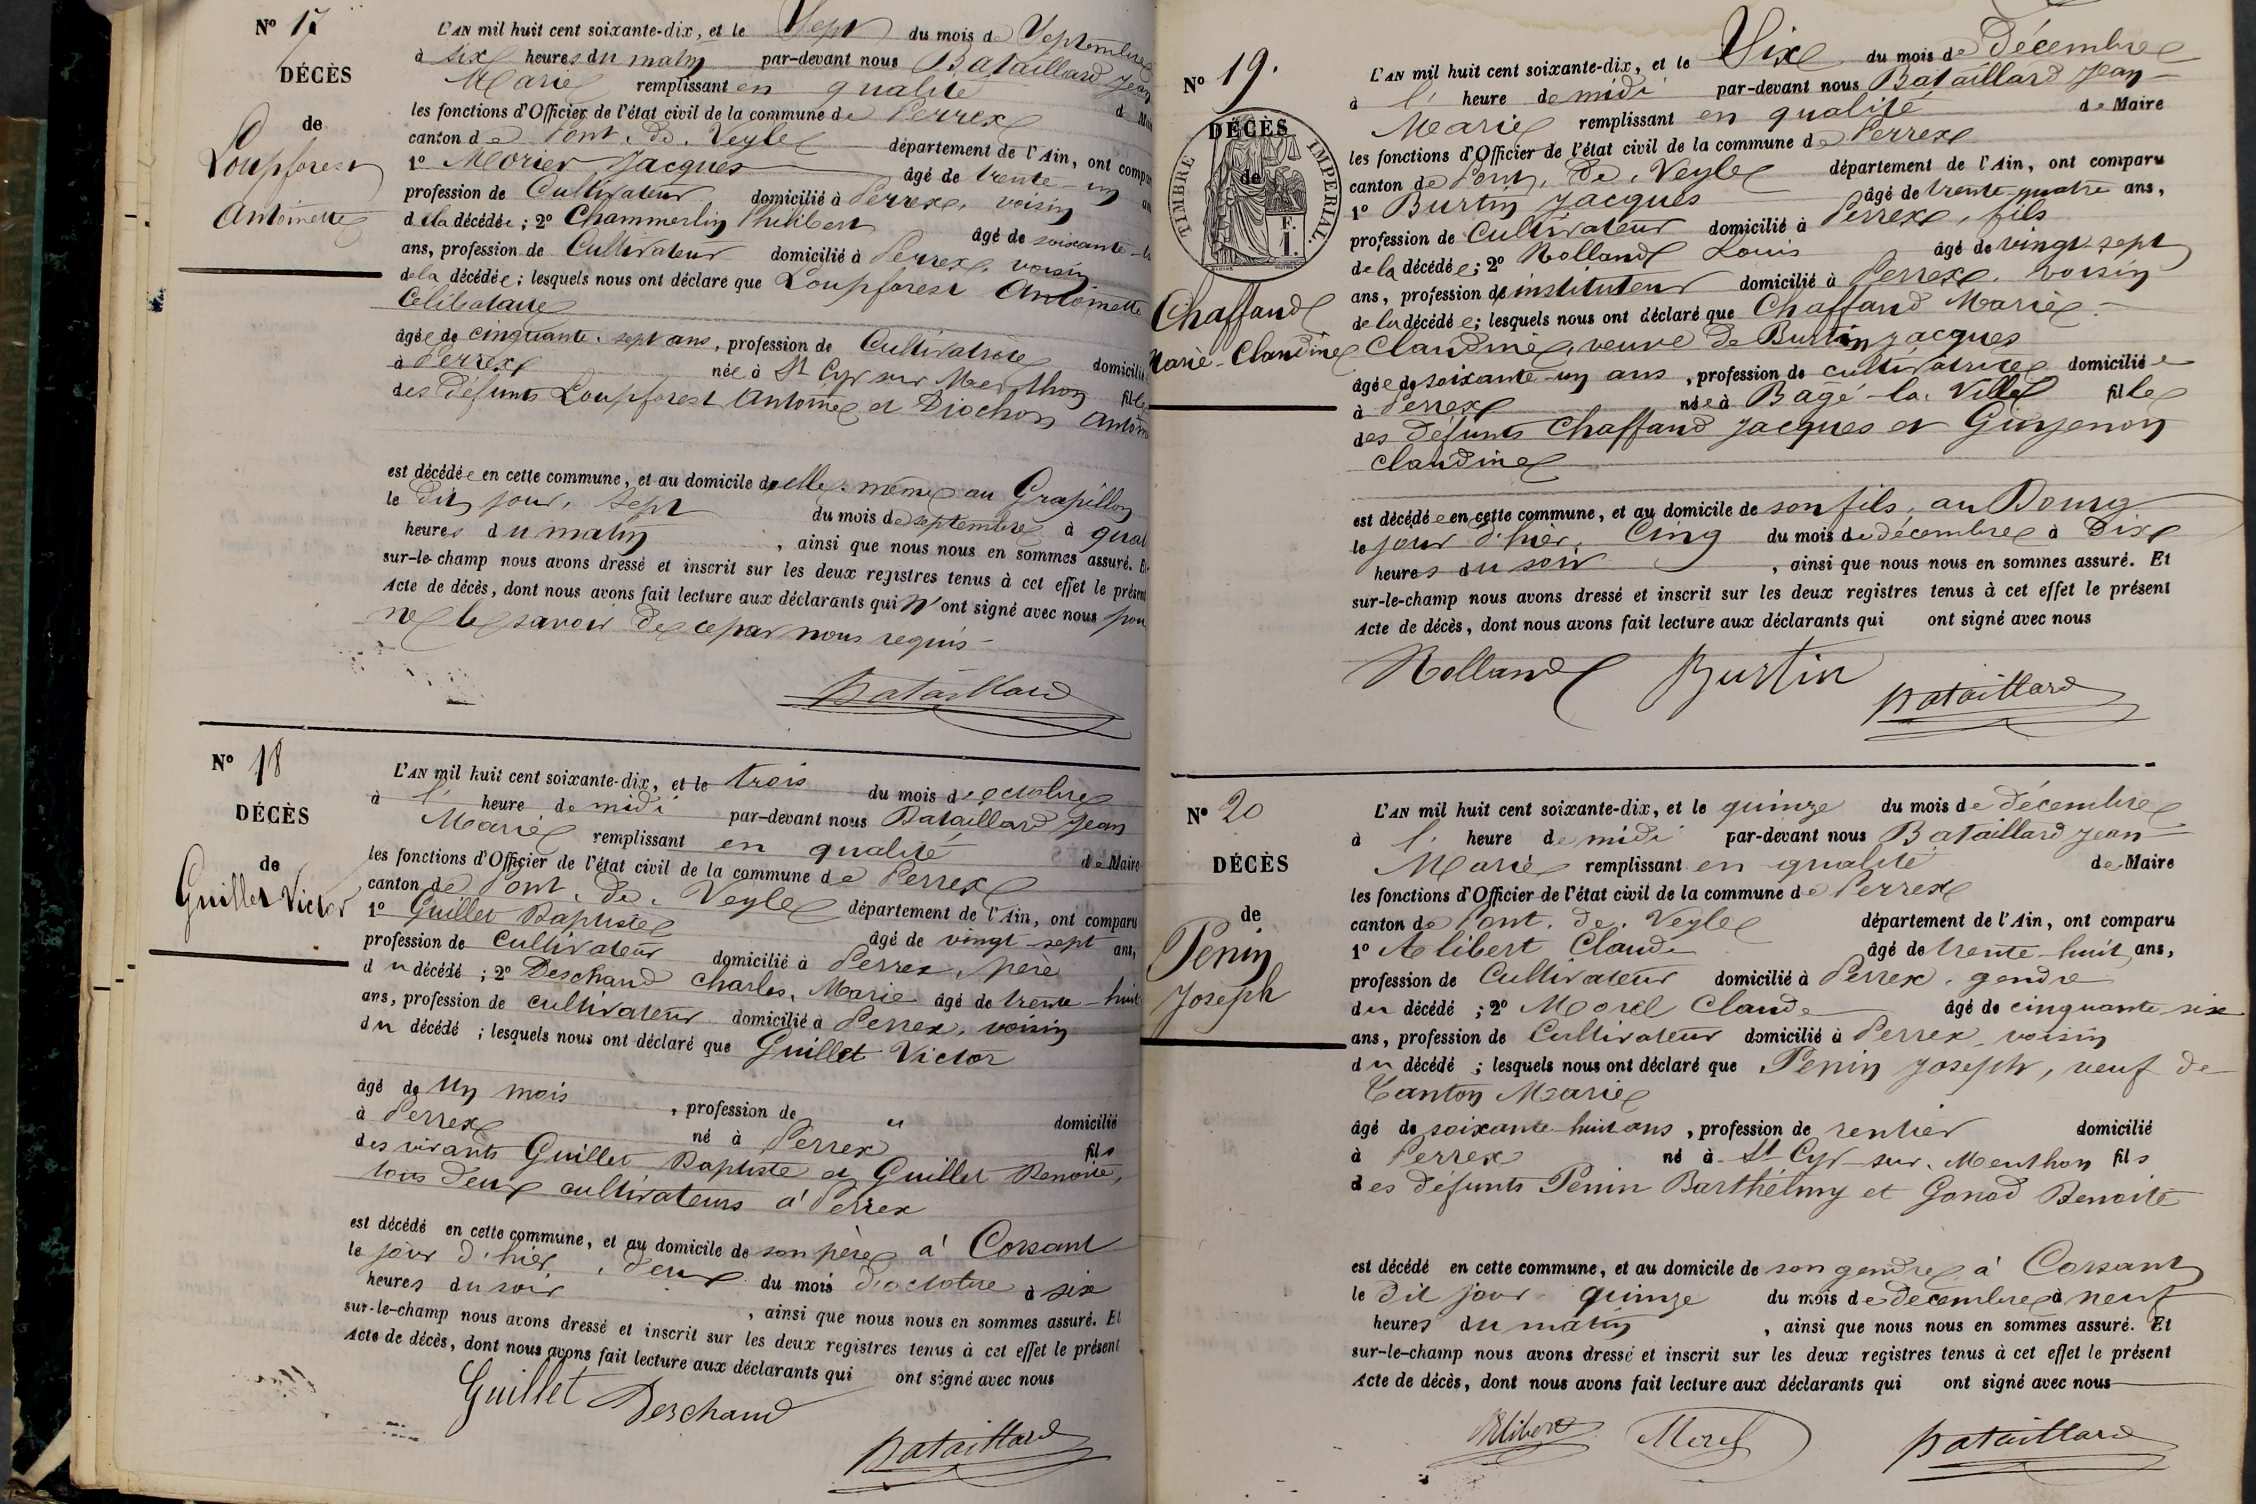 Nº 17
DÉCÈS
de
Loupforest
Antoinette
L'AN mil huit cent soixante-dix, et le Sept du mois de Septembre
à six heures du matin par-devant nous Bataillard Jean
Marie remplissant en qualité
les fonctions d'Officier de l'état civil de la commune de Perrex
canton de Pont. de. Veyle département de l'Ain, ont
1º Morier Jacques âgé de trente-un
profession de Cultivateur domicilié à Perrex, voisin
de la décédée; 2º Chammerlin Philibert âgé de soixante
ans, profession de Cultivateur domicilié à Perrex, voisin
de la décédée; lesquels nous ont déclaré que Loupforest Antoinette
Célibataire
âgée de cinquante-sept ans, profession de Cultivatrice
à Perrex née à St Cyr sur Menthon fille
des défunts Loupforest Antoine et Diochon
est décédée en cette commune, et au domicile d'elle-même au Grapillon
le dit jour, sept du mois de septembre à
heures du matin, ainsi que nous nous en sommes assuré. Et
sur-le-champ nous avons dressé et inscrit sur les deux registres tenus à cet effet le présent
Acte de décès, dont nous avons fait lecture aux déclarants qui n'ont signé avec nous pour
ne le savoir de ce par nous requis
Bataillard
Nº 18
DÉCÈS
de
Guillet Victor
L'AN mil huit cent soixante-dix, et le trois du mois d'octobre
à l' heure de midi par-devant nous Bataillard Jean
Marie remplissant en qualité de Maire
les fonctions d'Officier de l'état civil de la commune de Perrex
canton de Pont. de. Veyle département de l'Ain, ont comparu
1º Guillet Baptiste âgé de vingt-sept ans,
profession de Cultivateur domicilié à Perrex, père
du décédé; 2º Deschand Charles, Marie âgé de trente-huit
ans, profession de cultivateur domicilié à Perrex, voisin
du décédé; lesquels nous ont déclaré que Guillet Victor
âgé de un mois, profession de " domicilié
à Perrex né à Perrex fils
des vivants Guillet Baptiste et Guillet Benoite,
tous deux cultivateurs à Perrex
est décédé en cette commune, et au domicile de son père à Corsant
le jour d'hier, deux du mois d'octobre à six
heures du soir, ainsi que nous nous en sommes assuré. Et
sur-le-champ nous avons dressé et inscrit sur les deux registres tenus à cet effet le présent
Acte de décès, dont nous avons fait lecture aux déclarants qui ont signé avec nous
Guillet Deschand
Bataillard
Nº 19.
DÉCÈS
de
TIMBRE IMPÉRIAL.
F.
1.
Chaffaud
Marie-Claudine
L'AN mil huit cent soixante-dix, et le Six du mois de décembre
à l' heure de midi par-devant nous Bataillard Jean-
Marie remplissant en qualité de Maire
les fonctions d'Officier de l'état civil de la commune de Perrex
canton de Pont. de. Veyle département de l'Ain, ont comparu
1º Burtin Jacques âgé de trente-quatre ans,
profession de Cultivateur domicilié à Perrex, fils
de la décédée; 2º Rolland Louis âgé de vingt-sept
ans, profession d'instituteur domicilié à Perrex, voisin
de la décédée; lesquels nous ont déclaré que Chaffaud Marie-
Claudine, veuve de Burtin Jacques
âgée de soixante-un ans, profession de cultivatrice domiciliée
à Perrex née à Bâgé-la-Ville fille
des défunts Chaffaud Jacques et Guyenon
Claudine
est décédée en cette commune, et au domicile de son fils, au Bourg
le jour d'hier, Cinq du mois de décembre à Dix
heures du soir, ainsi que nous nous en sommes assuré. Et
sur-le-champ nous avons dressé et inscrit sur les deux registres tenus à cet effet le présent
Acte de décès, dont nous avons fait lecture aux déclarants qui ont signé avec nous
Rolland Burtin
Bataillard
Nº 20
DÉCÈS
de
Penin
Joseph
L'AN mil huit cent soixante-dix, et le quinze du mois de décembre
à l' heure de midi par-devant nous Bataillard Jean-
Marie remplissant en qualité de Maire
les fonctions d'Officier de l'état civil de la commune de Perrex
canton de Pont. de. Veyle département de l'Ain, ont comparu
1º Alibert Claude âgé de trente-huit ans,
profession de Cultivateur domicilié à Perrex, gendre
du décédé; 2º Morel Claude âgé de cinquante-six
ans, profession de Cultivateur domicilié à Perrex, voisin
du décédé; lesquels nous ont déclaré que Penin Joseph, veuf de
Canton Marie
âgé de soixante-huit ans, profession de rentier domicilié
à Perrex né à St Cyr-sur-Menthon fils
des défunts Penin Barthélmy et Gonod Benoite
est décédé en cette commune, et au domicile de son gendre à Corsant
le dit jour quinze du mois de décembre à neuf
heures du matin, ainsi que nous nous en sommes assuré. Et
sur-le-champ nous avons dressé et inscrit sur les deux registres tenus à cet effet le présent
Acte de décès, dont nous avons fait lecture aux déclarants qui ont signé avec nous
Alibert Morel Bataillard